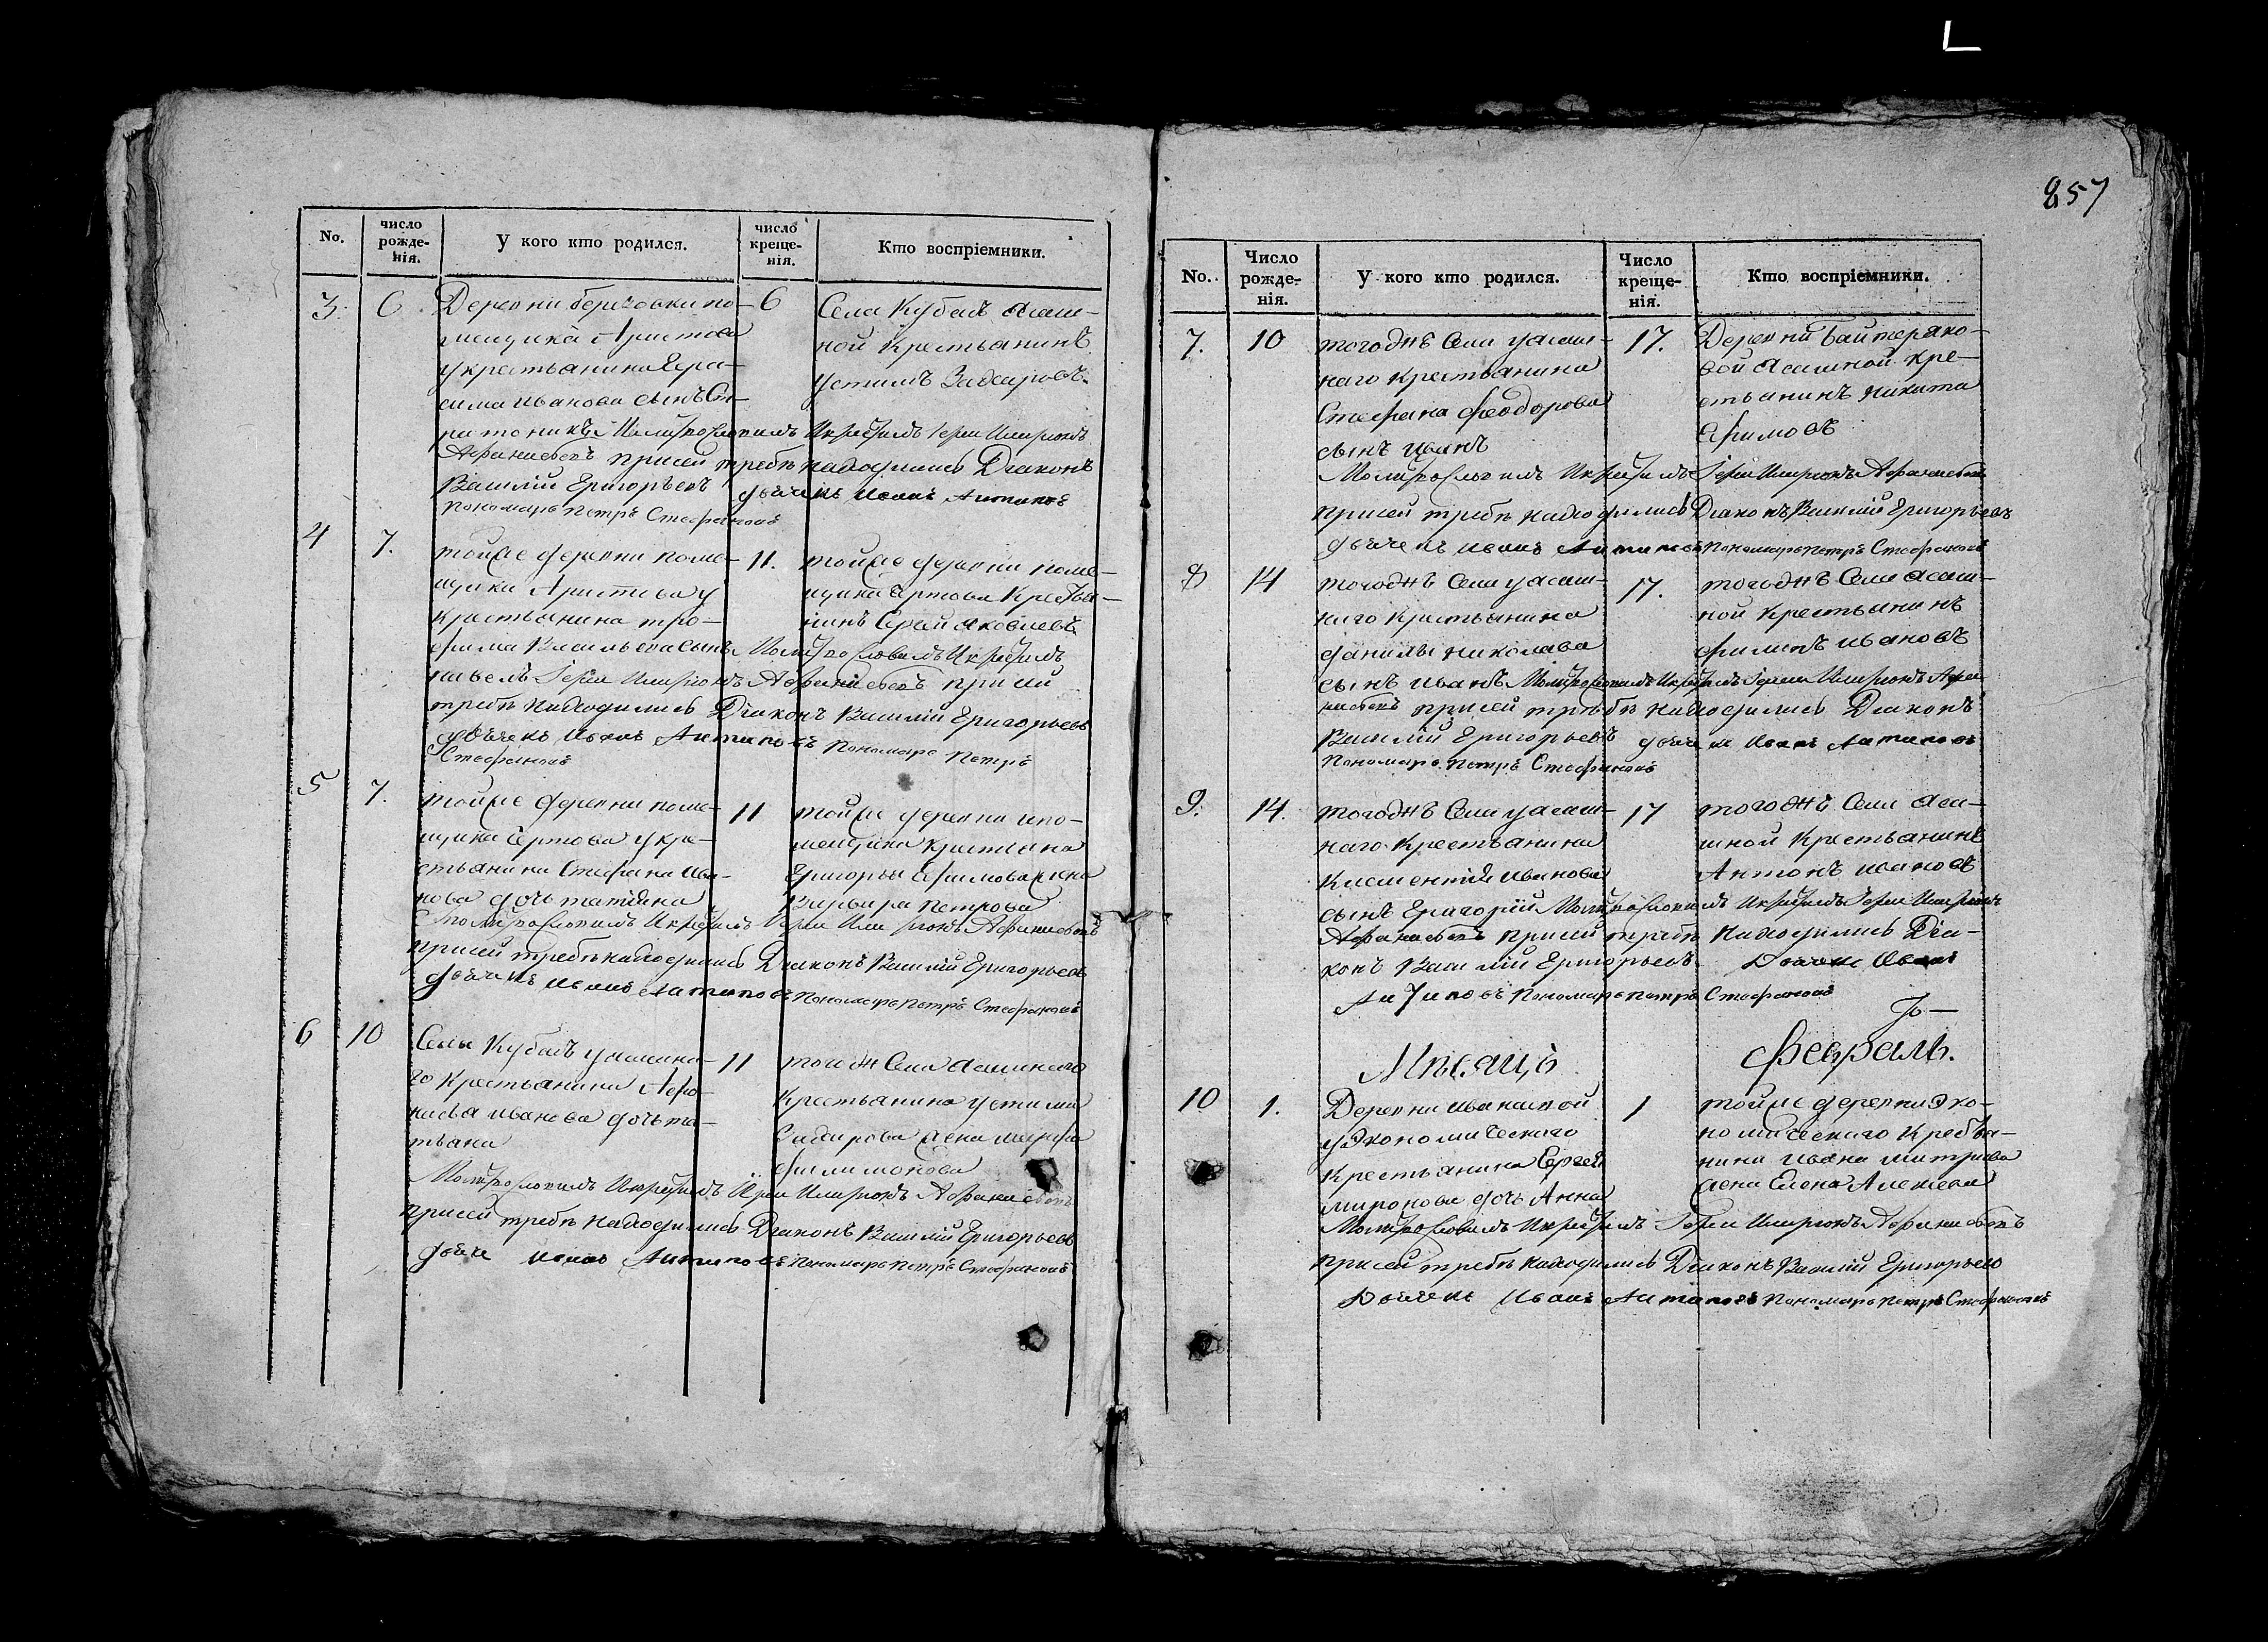 857
No.
число рожде-нія.
У кого кто родился.
число креще-нія.
Кто воспріемники.
3.
6
Деревни
по-
мещика Аристова
у крестьянина Гера-
сима Иванова сынъ
6
Села Кубаъ Ясаш-
ной Крестьянинъ
Устимъ
Молитвословилъ и крестилъ Іерей Иларіонъ
Афанасьевъ при сей требѣ находились Діаконъ
Василій Григорьевъ дьячекъ Иванъ Антиповъ
Пономарь Петръ Стефановъ
4
7.
тойже деревни поме-
щика Аристова у
Крестьянина тро-
фима Васильева сынъ
11.
тойже деревни поме-
щика Ертова Крестья-
нинъ Сергей Яковлевъ
Молитвословилъ и крестилъ
Іерей Иларіонъ Афанасьевъ при сей
требѣ находились Діаконъ Василій Григорьевъ
дьячекъ Иванъ Антиповъ Пономарь Петръ
Стефановъ
5
7.
тойже деревни поме-
щика Ертова у кре-
стьянина Стефана Ива-
нова дочь татіяна
11
тойже деревни и по-
мещика крестьяна
Григорья Ефимова жена
Варвара Петрова
Молитвословилъ и крестилъ Іерей Иларіонъ Афанасьевъ
при сей требѣ находились Діаконъ Василій Григорьевъ
дьячекъ Иванъ Антиповъ Пономарь Петръ Стефановъ
6
10
Села Кубаъ у ясашна-
го Крестьянина Афо-
насья Иванова дочь та-
тьяна
11
тогожъ Села Ясашнаго
Крестьянина устима
жена марфа
филимонова
Молитвословилъ и крестилъ Іерей Иларіонъ Афанасьевъ
при сей требѣ находились Діаконъ Василій Григорьевъ
дьяче Иванъ Антиповъ Пономарь Петръ Стефановъ
No.
Число рожде-нія.
У кого кто родился.
Число креще-нія.
Кто воспріемники.
7.
10
тогожъ Села у ясаш-
наго крестьянина
Стефана Феодорова
сынъ Иванъ
17.
Деревни Байтеряко-
вой Ясашной кре-
стьянинъ Никита
Ефимовъ
Молитвословилъ и крестилъ Іерей Иларіонъ Афанасьевъ
при сей требѣ находились Діаконъ Василій Григорьевъ
дьячекъ Иванъ Антиповъ Пономарь Петръ Стефановъ
8
14
тогожъ Села у ясаш-
наго Крестьянина
данилы Николаева
сынъ Иванъ
17.
тогожъ Села Ясаш-
ной Крестьянинъ
филипъ Ивановъ
Молитвословилъ и крестилъ Іерей Иларіонъ Афа-
насьевъ при сей требѣ находились Діаконъ
Василій Григорьевъ дьячекъ Иванъ Антиповъ
Пономарь Петръ Стефановъ
9.
14.
тогожъ Села у ясаш-
наго Крестьянина
Клементія Иванова
сынъ Григорій
17
тогожъ Села Яса-
шной Крестьянинъ
Антонъ Ивановъ
Молитвословилъ и крестилъ Іерей Иларіонъ
Афанасьевъ при сей требѣ находились Діа-
конъ Василій Григорьевъ Дьячекъ Иванъ
Антиповъ Пономарь Петръ Стефановъ
Мѣсяцъ
Февраль.
10
1.
Деревни Иванаевой
у Экономическаго
Крестьянина Сергея
миронова дочь Анна
1
тойже деревни Эко-
номическаго Крестья-
нина Ивана митриева
жена Елена Алексева
Молитвословилъ и крестилъ Іерей Иларіонъ Афанасьевъ
при сей требѣ находились Діаконъ Василій Григорьевъ
Дьячекъ Иванъ Антиповъ Пономарь Петръ Стефановъ